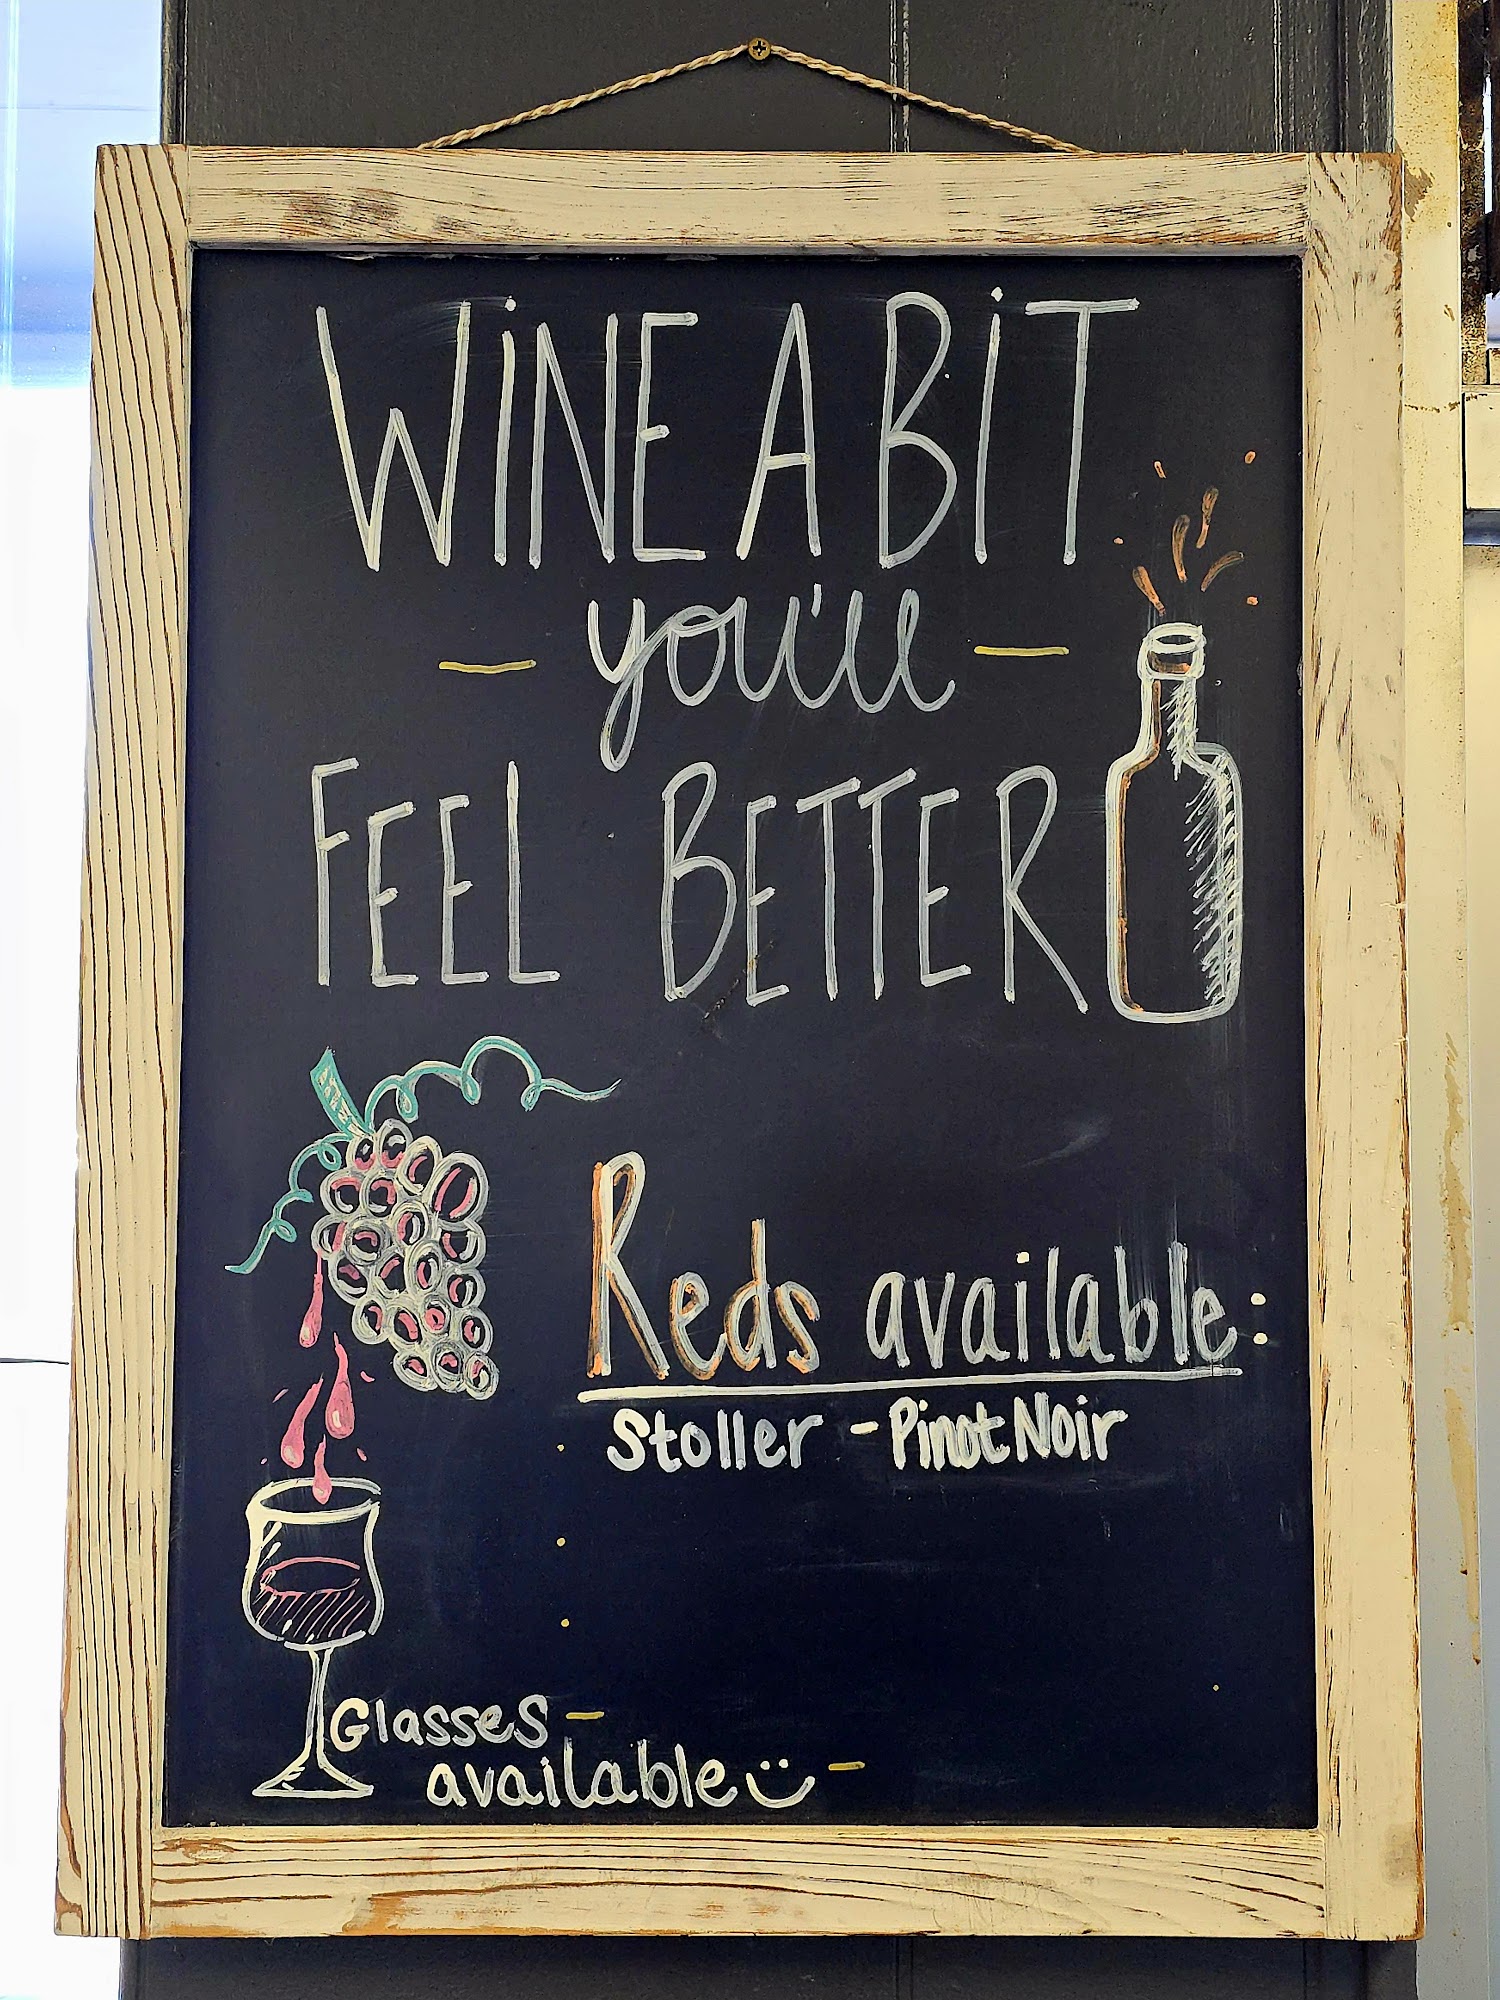 WiNE A BiT
you'll
FEEL BETTER
Reds available:
Stoller - Pinot Noir
Glasses -
available -